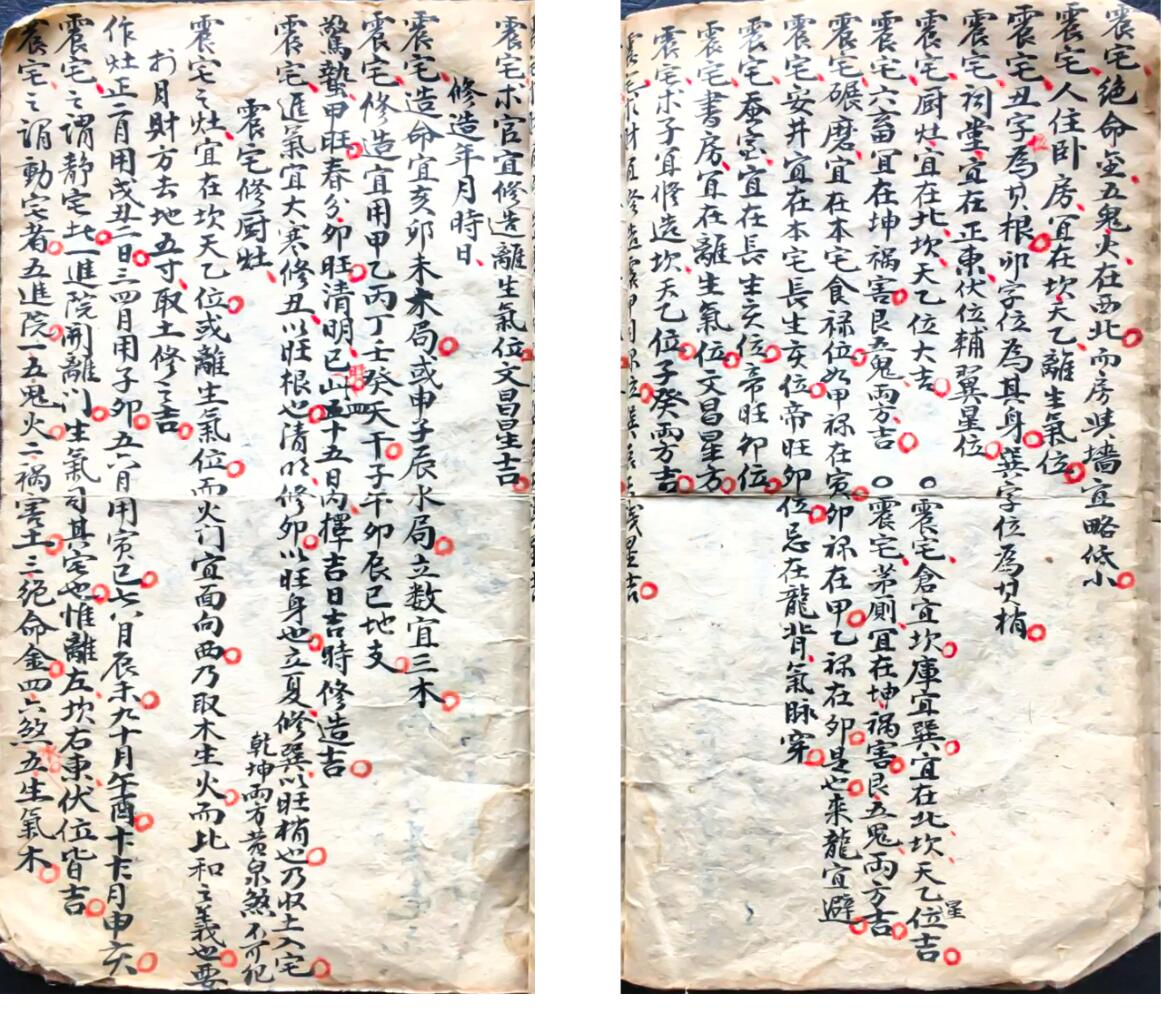 震宅絶命金五鬼火在西北而房此墙宜略低小
震宅人住卧房宜在坎天乙離生氣位
震宅丑字位為其根卯字位為其身巽字位為其梢
震宅祠堂宜在正東伏位輔翼星位
震宅厨灶宜在北坎天乙位大吉
震宅倉宜坎庫宜巽宜在北坎天乙星位吉
震宅六畜宜在坤禍害艮五鬼兩方吉
震宅茅厠宜在坤禍害艮五鬼兩方吉
震宅碾磨宜在本宅食禄位如甲禄在寅卯禄在甲乙禄在卯是也來龍宜避
震宅安井宜在本宅長生亥位帝旺卯位忌在龍背氣脉穿
震宅蚕室宜在長生亥位帝旺卯位
震宅書房宜在離生氣位文昌星方
震宅求子宜修造坎天乙位子癸兩方吉
震宅求財宜修造
震宅求官宜修造離生氣位文昌星吉
修造年月時日
震宅造命宜亥卯未木局或申子辰水局立数宜三木
震宅修造宜用甲乙丙丁壬癸天干子午卯辰巳地支
驚蟄甲旺春分卯旺清明巳山四十五日内擇吉日吉時修造吉
震宅進氣宜大寒修丑以旺根也清明修卯以旺身也立夏修巽以旺梢也乃収土入宅
震宅修厨灶
乾坤兩方黄泉煞不可犯
震宅之灶宜在坎天乙位或離生氣位而火门宜面向西乃取木生火而比和之義也要
於月財方去地五寸取土修之吉
作灶正二月用戌丑二日三四月用子卯五六月用寅巳七八月辰未九十月午酉十十一月申亥
震宅之謂静宅此一進院開離门生氣司其宅也惟離左坎右東伏位皆吉
震宅之謂動宅者五進院一五鬼火二禍害土三絶命金四六煞五生氣木